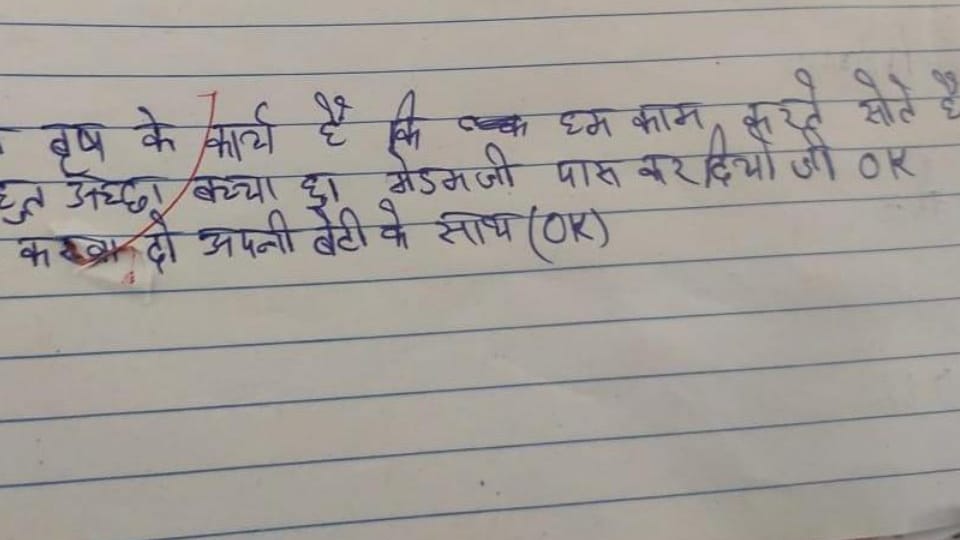 वृष के कार्य है कि हम काम करते सोते है
हुत अच्छा बच्चा हु। मेडमजी पास कर दियो जी OK
करवा दो अपनी बेटी के साथ (OK)